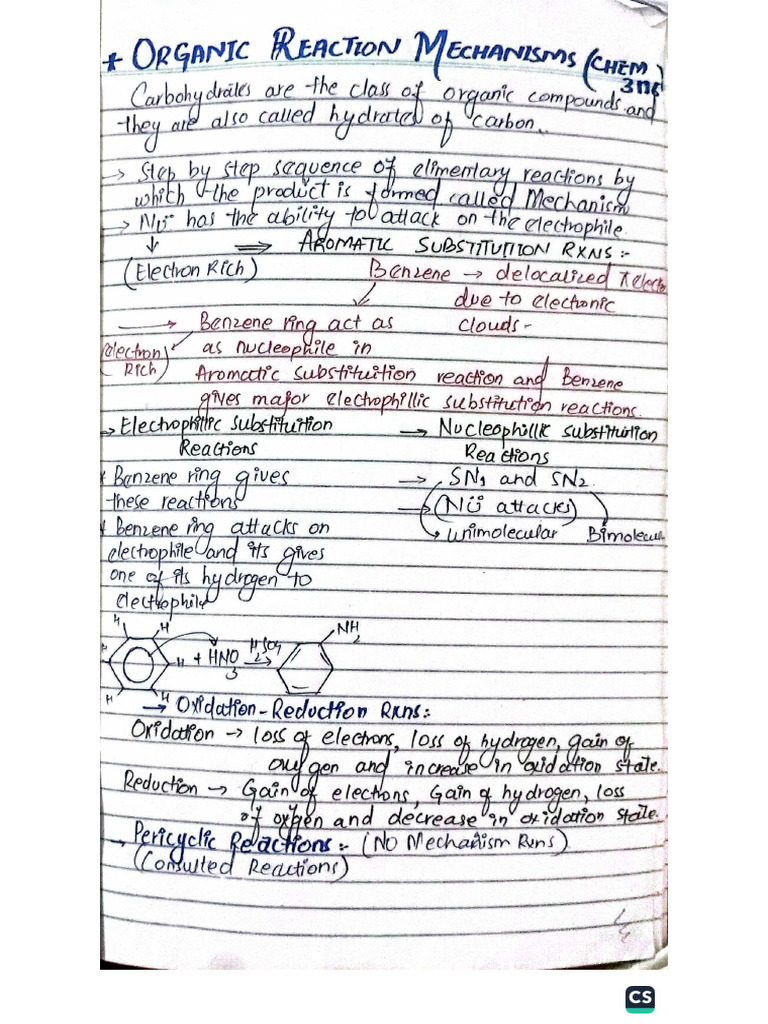 * ORGANIC REACTION MECHANISMS (CHEM)
Carbohydrates are the class of organic compounds and
they are also called hydrates of carbon..
→ Step by step sequence of elimentary reactions by
which the product is formed called Mechanism
→ Nu⁻ has the ability to attack on the electrophile.
↓
⇒ AROMATIC SUBSTITUTION RXNS :-
(Electron Rich)
Benzene → delocalized π elect
due to electronic
clouds -
→ Benzene ring act as
(electron Rich)
as nucleophile in
Aromatic substituition reaction and Benzene
gives major electrophillic substitution reactions.
→ Electrophillic substituition
Reactions
* Benzene ring gives
these reactions
* Benzene ring attacks on
electrophile and its gives
one of its hydrogen to
electrophile
→ Nucleophillic substituition
Reactions
→ SN1 and SN2.
→ (Nü attacks)
unimolecular Bimolecul
H H H H H + HNO3 H2SO4 → NH2
→ Oxidation - Reduction Rxns :-
Oxidation → loss of electrons, loss of hydrogen, gain of
oxygen and increase in oxidation state.
Reduction → Gain of electrons, Gain of hydrogen, loss
of oxygen and decrease in oxidation state.
→ Pericyclic Reactions :- (No Mechanism Rxns)
Reactions)
CS